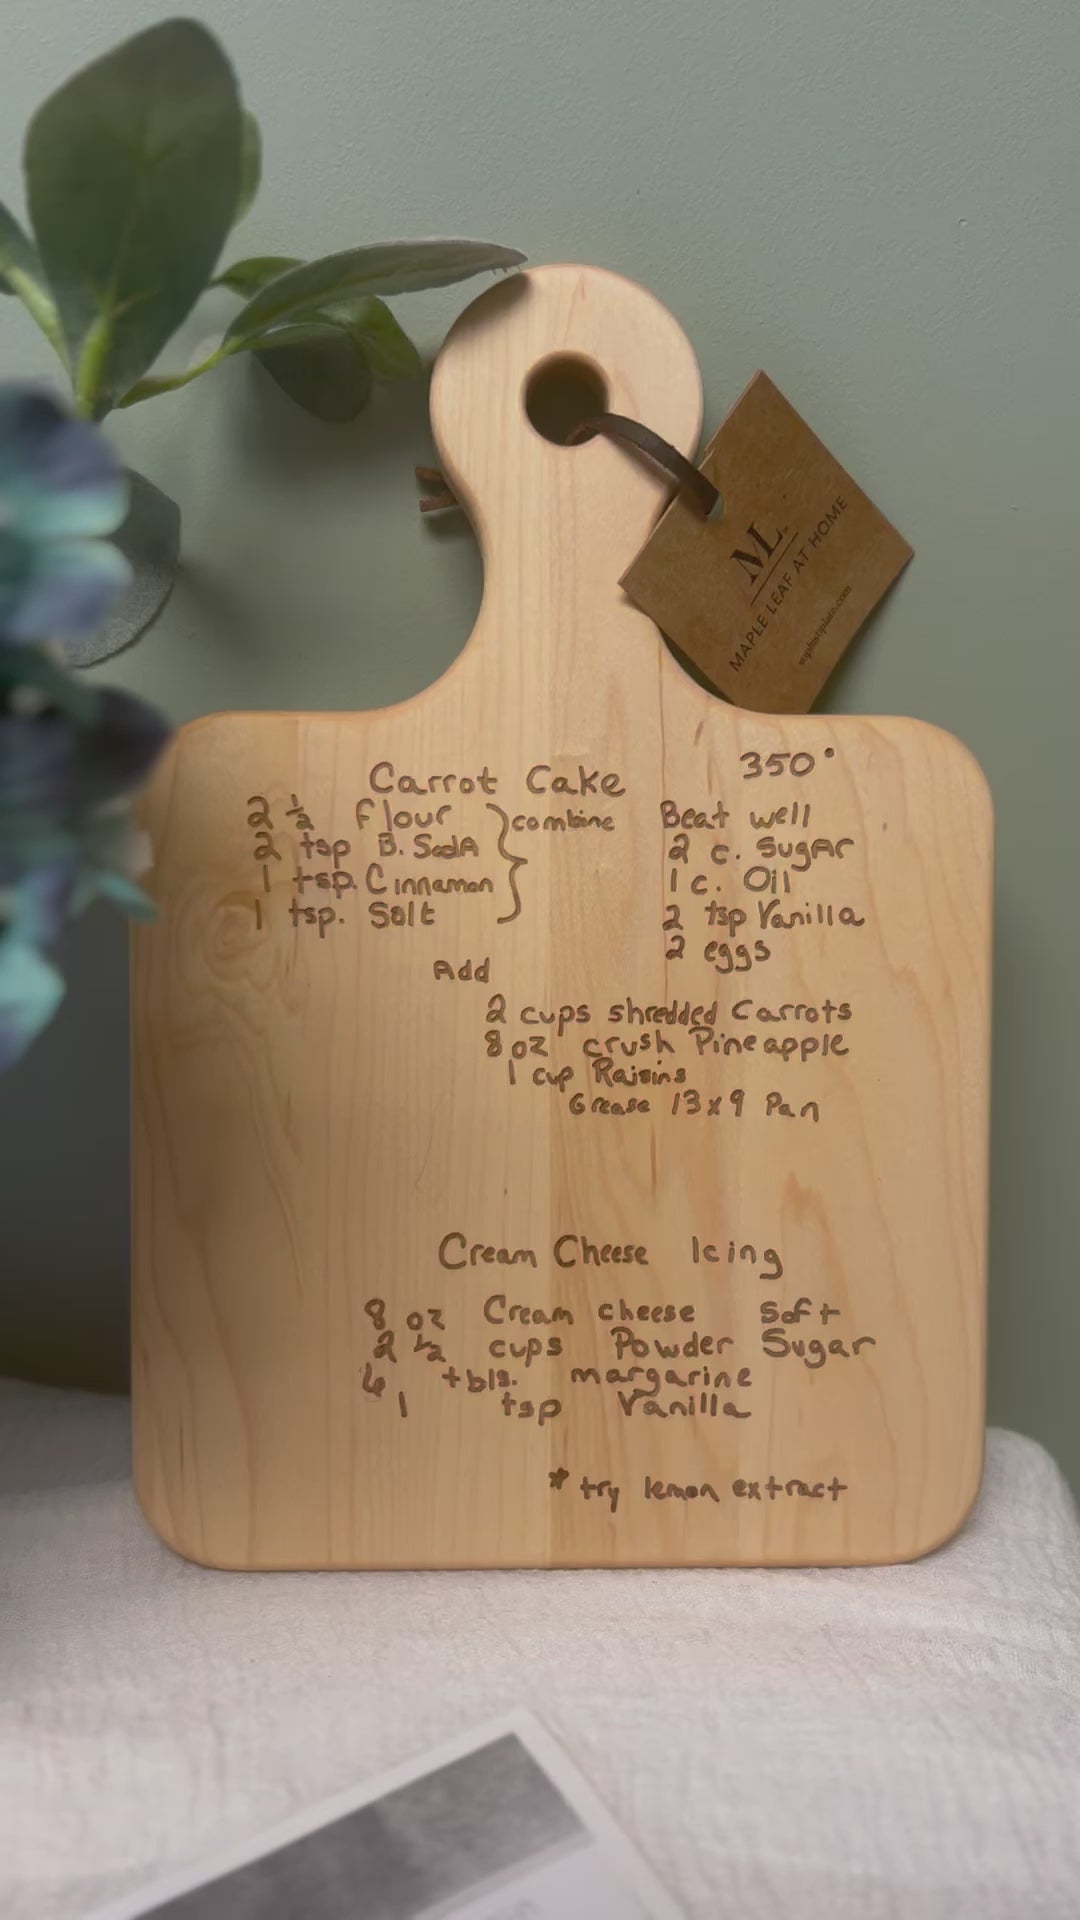 ML
MAPLE LEAF AT HOME
sophistiplate.com
Carrot Cake
350°
2 ½ flour
2 tsp B. SodA
1 tsp. Cinnamon
1 tsp. Salt
combine
Beat well
2 c. SugAr
1 c. Oil
2 tsp Vanilla
2 eggs
Add
2 cups shredded Carrots
8 oz crush Pineapple
1 cup Raisins
Grease 13x9 Pan
Cream Cheese Icing
8 oz Cream cheese soft
2 ½ cups Powder Sugar
6 tbls. margarine
1 tsp Vanilla
* try lemon extract